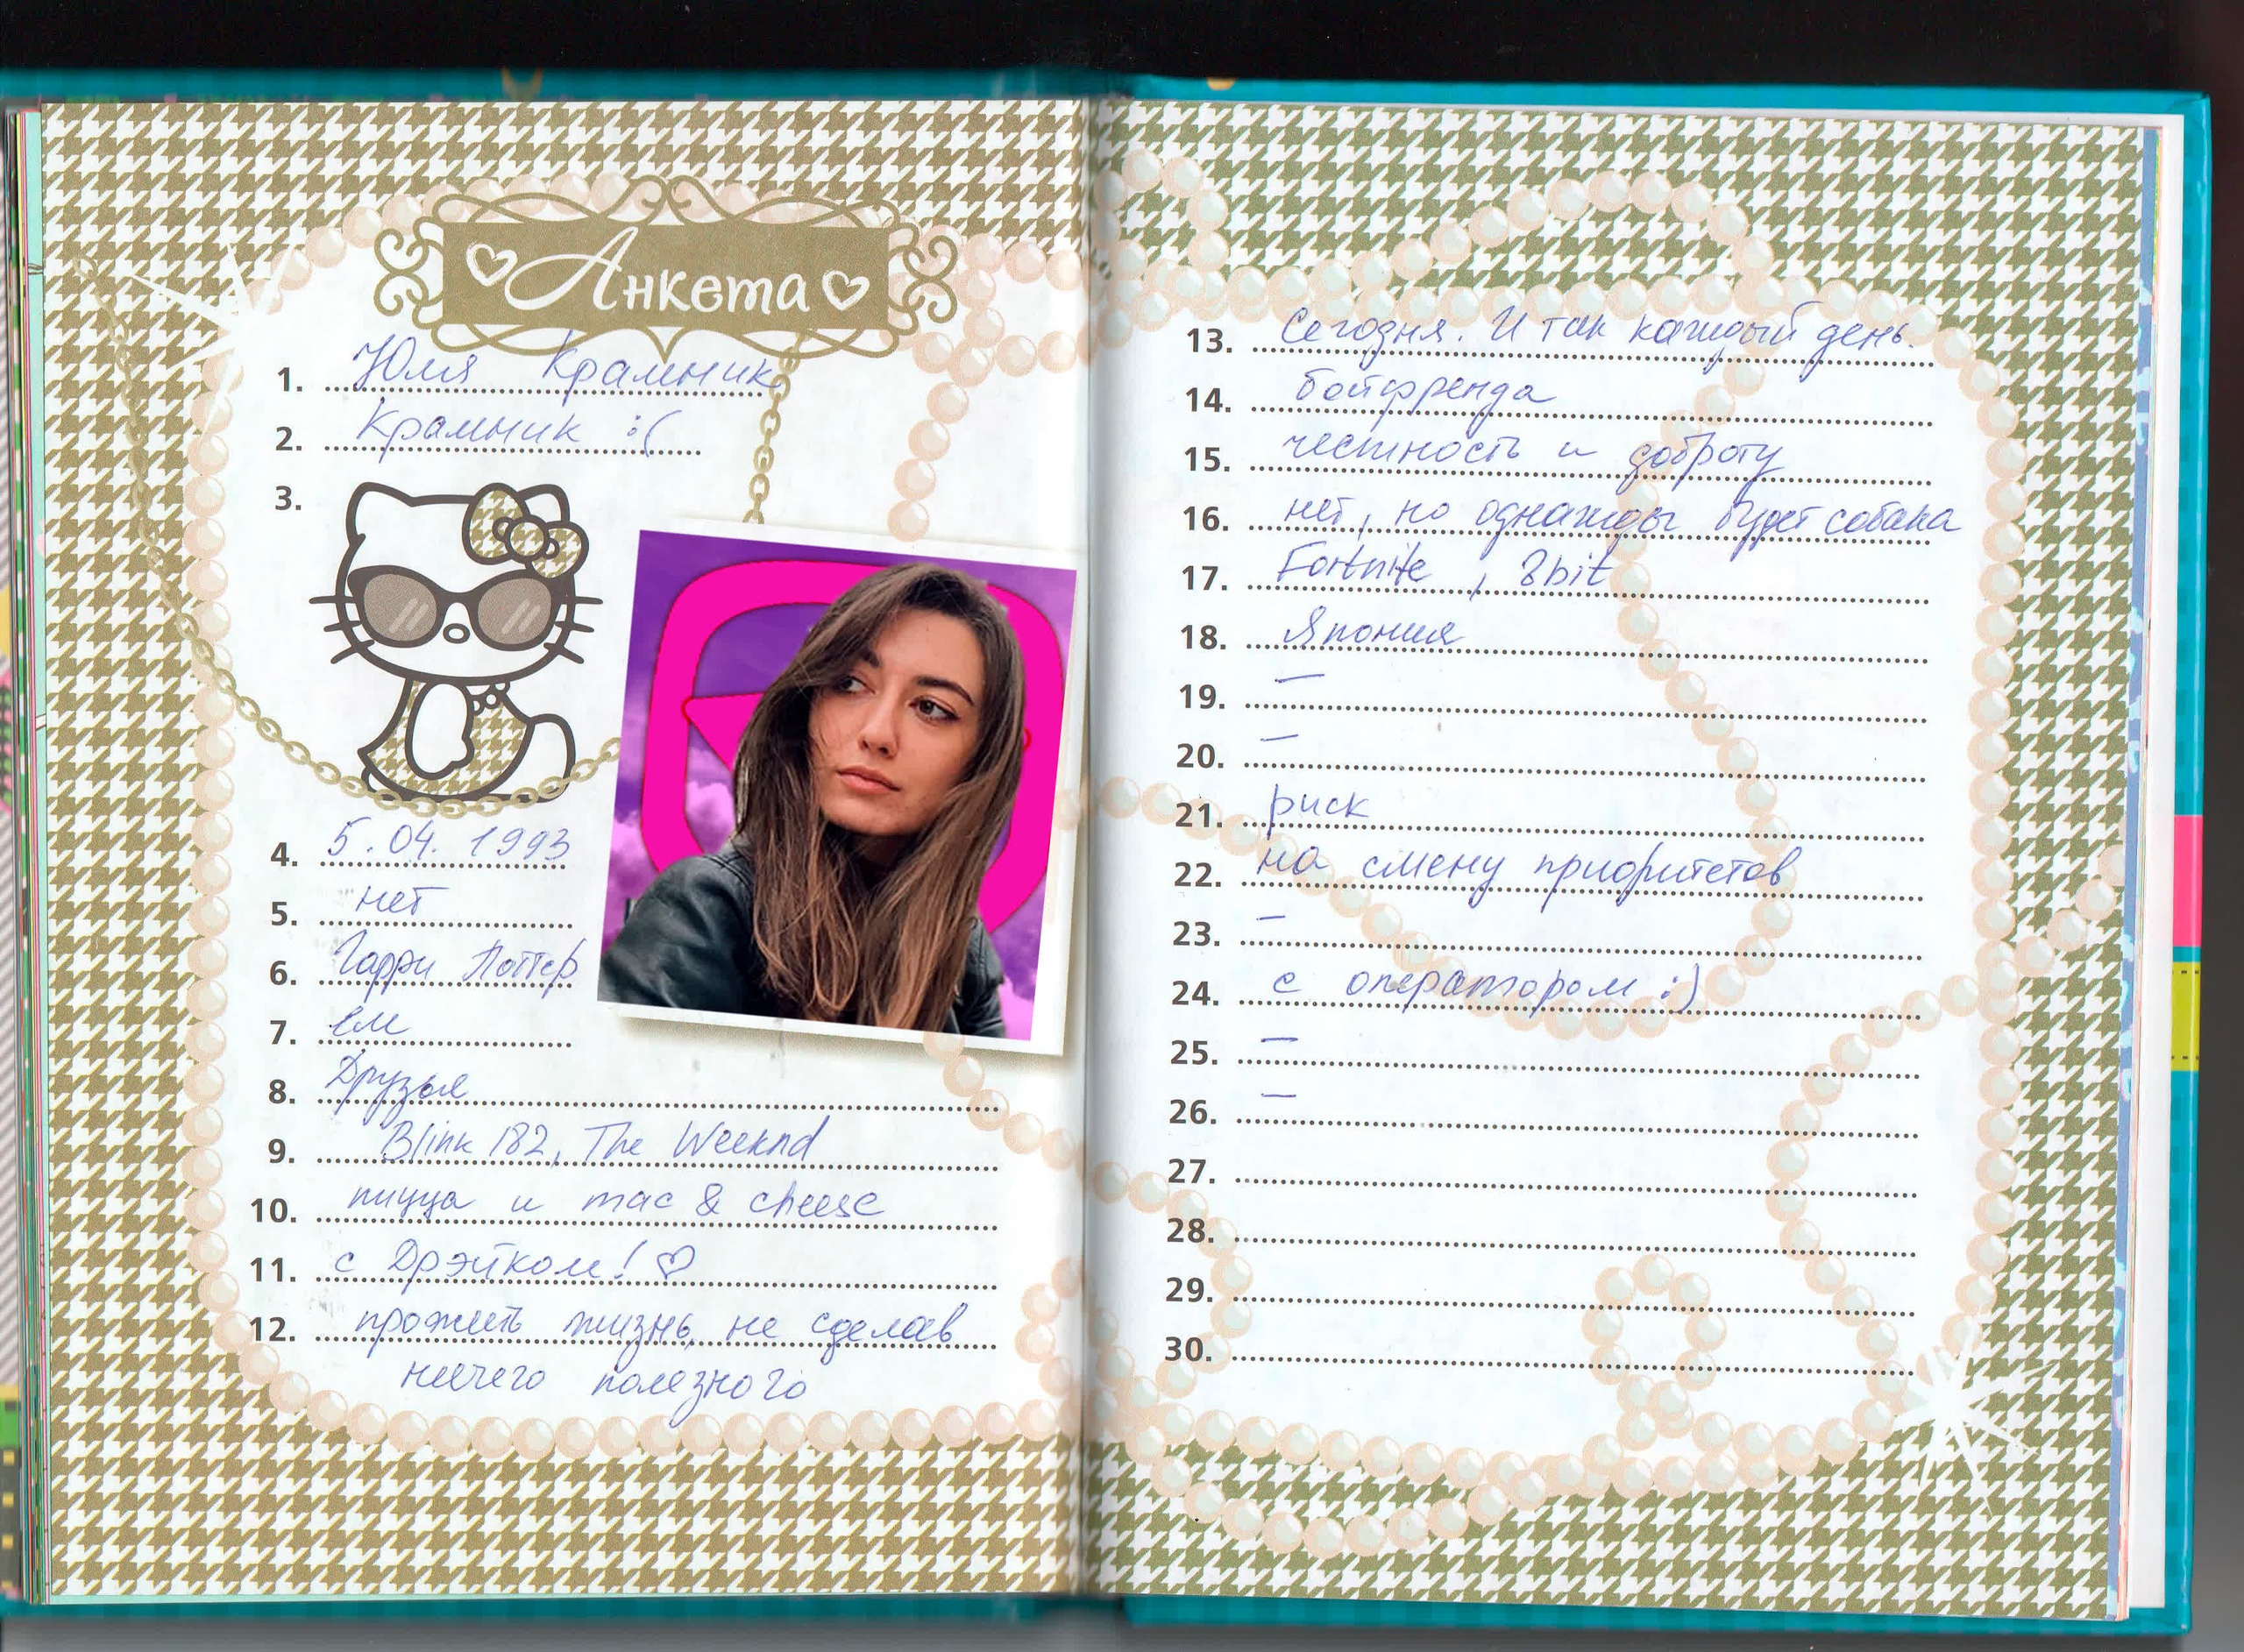 Анкета
1. Юля Крамник
2. Крамник :(
3.
4. 5.04.1993
5. нет
6. Гарри Поттер
7. ем
8. Друзья
9. Blink 182, The Weeknd
10. пицца и mac & cheese
11. с Дрэйком! ♡
12. прожить жизнь, не сделав
ничего полезного
13. Сегодня. И так каждый день.
14. бойфренда
15. честность и доброту
16. нет, но однажды будет собака
17. Fortnite, 8bit
18. Япония
19. —
20. —
21. риск
22. на смену приоритетов
23. —
24. с оператором :)
25. —
26. —
27.
28.
29.
30.